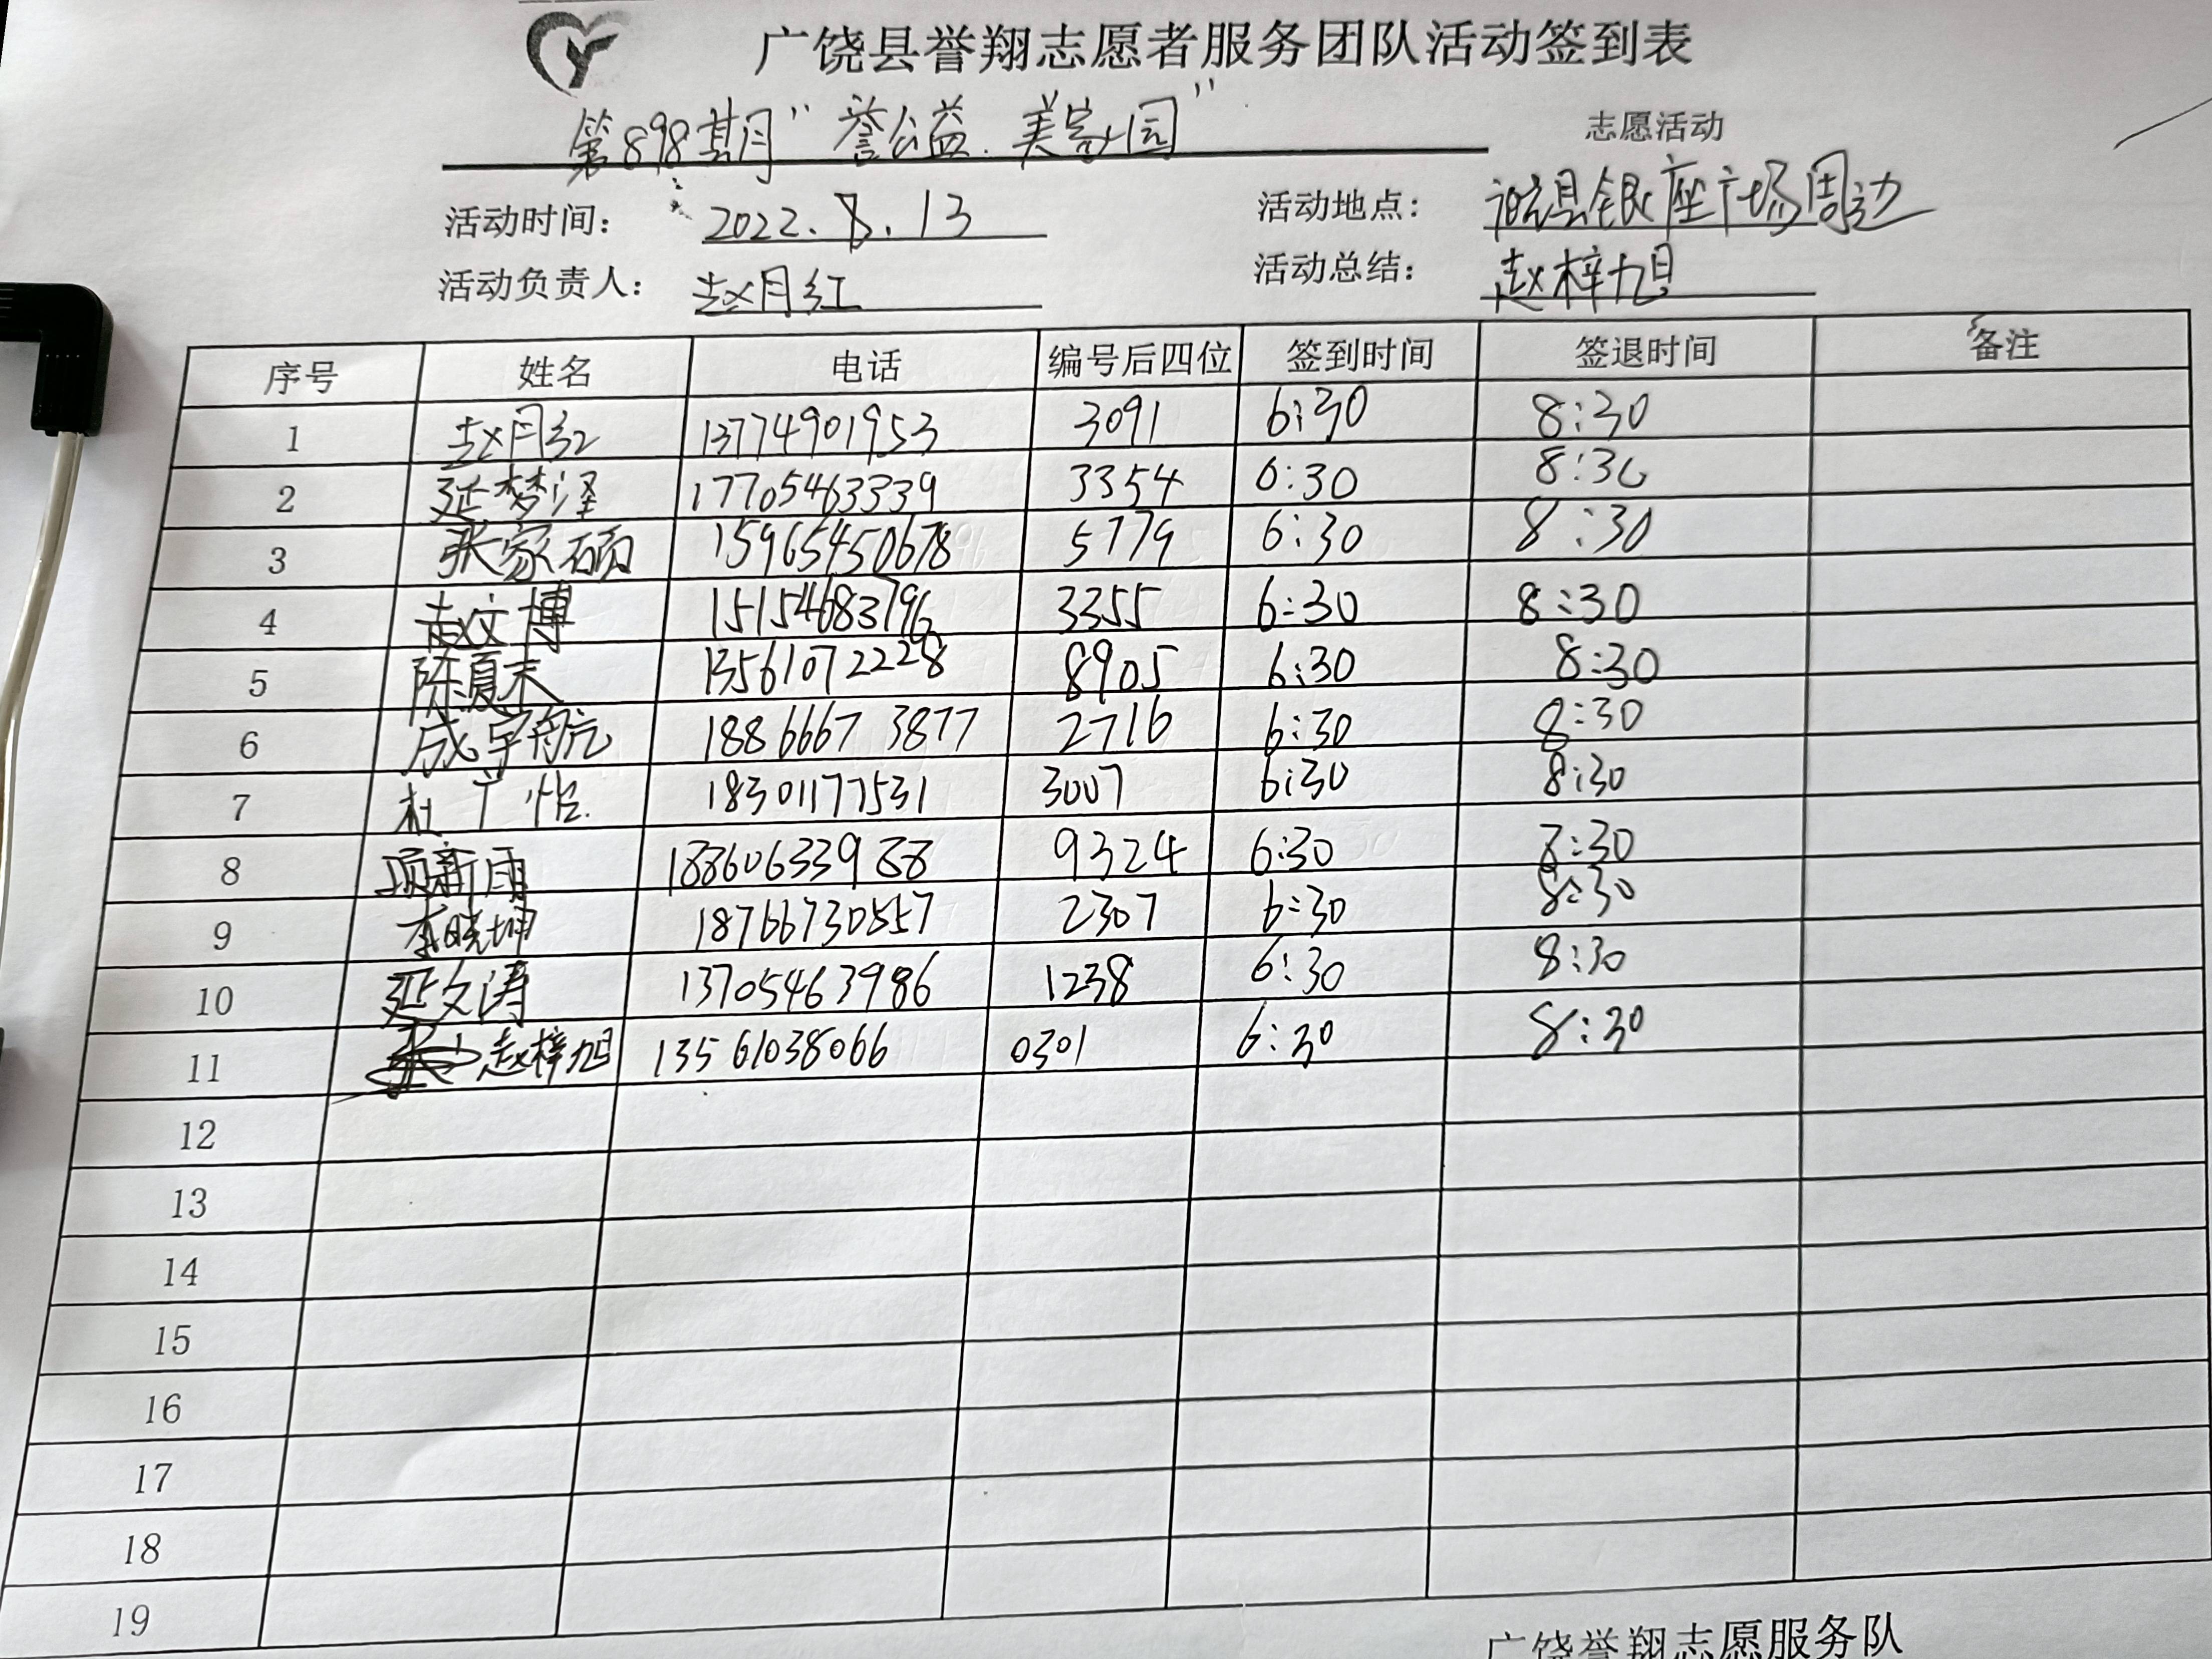 广饶县誉翔志愿者服务团队活动签到表
第898期"誉公益.美家园"
志愿活动
活动时间： 2022.8.13 活动地点： 县银座广场周边
活动负责人： 赵月红 活动总结： 赵梓旭
序号 姓名 电话 编号后四位 签到时间 签退时间 备注
1 赵月红 13774901953 3091 6:30 8:30
2 延梦泽 17705463339 3354 6:30 8:30
3 张家硕 15965450678 5779 6:30 8:30
4 赵文博 15154683796 3355 6:30 8:30
5 陈夏末 13561072228 8905 6:30 8:30
6 成宇航 18866673877 2716 6:30 8:30
7 杜 怡 18301177531 3007 6:30 8:30
8 项新雨 18860633988 9324 6:30 8:30
9 李晓坤 18766730557 2307 6:30 8:30
10 延文涛 13705463986 1238 6:30 8:30
11 赵梓旭 13561038066 0301 6:30 8:30
12
13
14
15
16
17
18
19
广饶誉翔志愿服务队